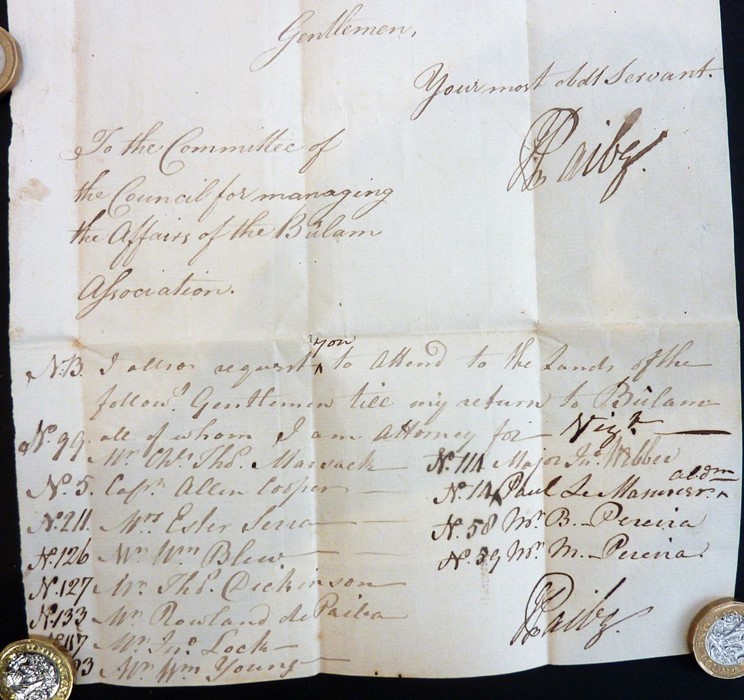 Gentlemen,
Your most obdt Servant.
JPaiba.
To the Committee of
the Council for managing
the Affairs of the Bulam
Association.
N.B. I allso request you to Attend to the Lands of the
follow.g Gentlemen till my return to Bulam
all of whom I am Attorney for Viz.t
No. 99. Mr. Chs. Thos. Marsack
No. 5. Capn. Allen Cooper
No. 211. Mrs Ester Serra
No. 126 Mr. Wm. Blew
No. 127 Mr. Thos. Dickinson
No. 133 Mr. Rowland de Paiba
No. 117 Mr. Jno. Lock
93 Mr. Wm. Young
No. 111 Major Jno. Webber
No. Paul Le Mesurier. aldm
No. 58 Mr. B. Pereira
No. 59 Mr. M. Pereira.
JPaiba.